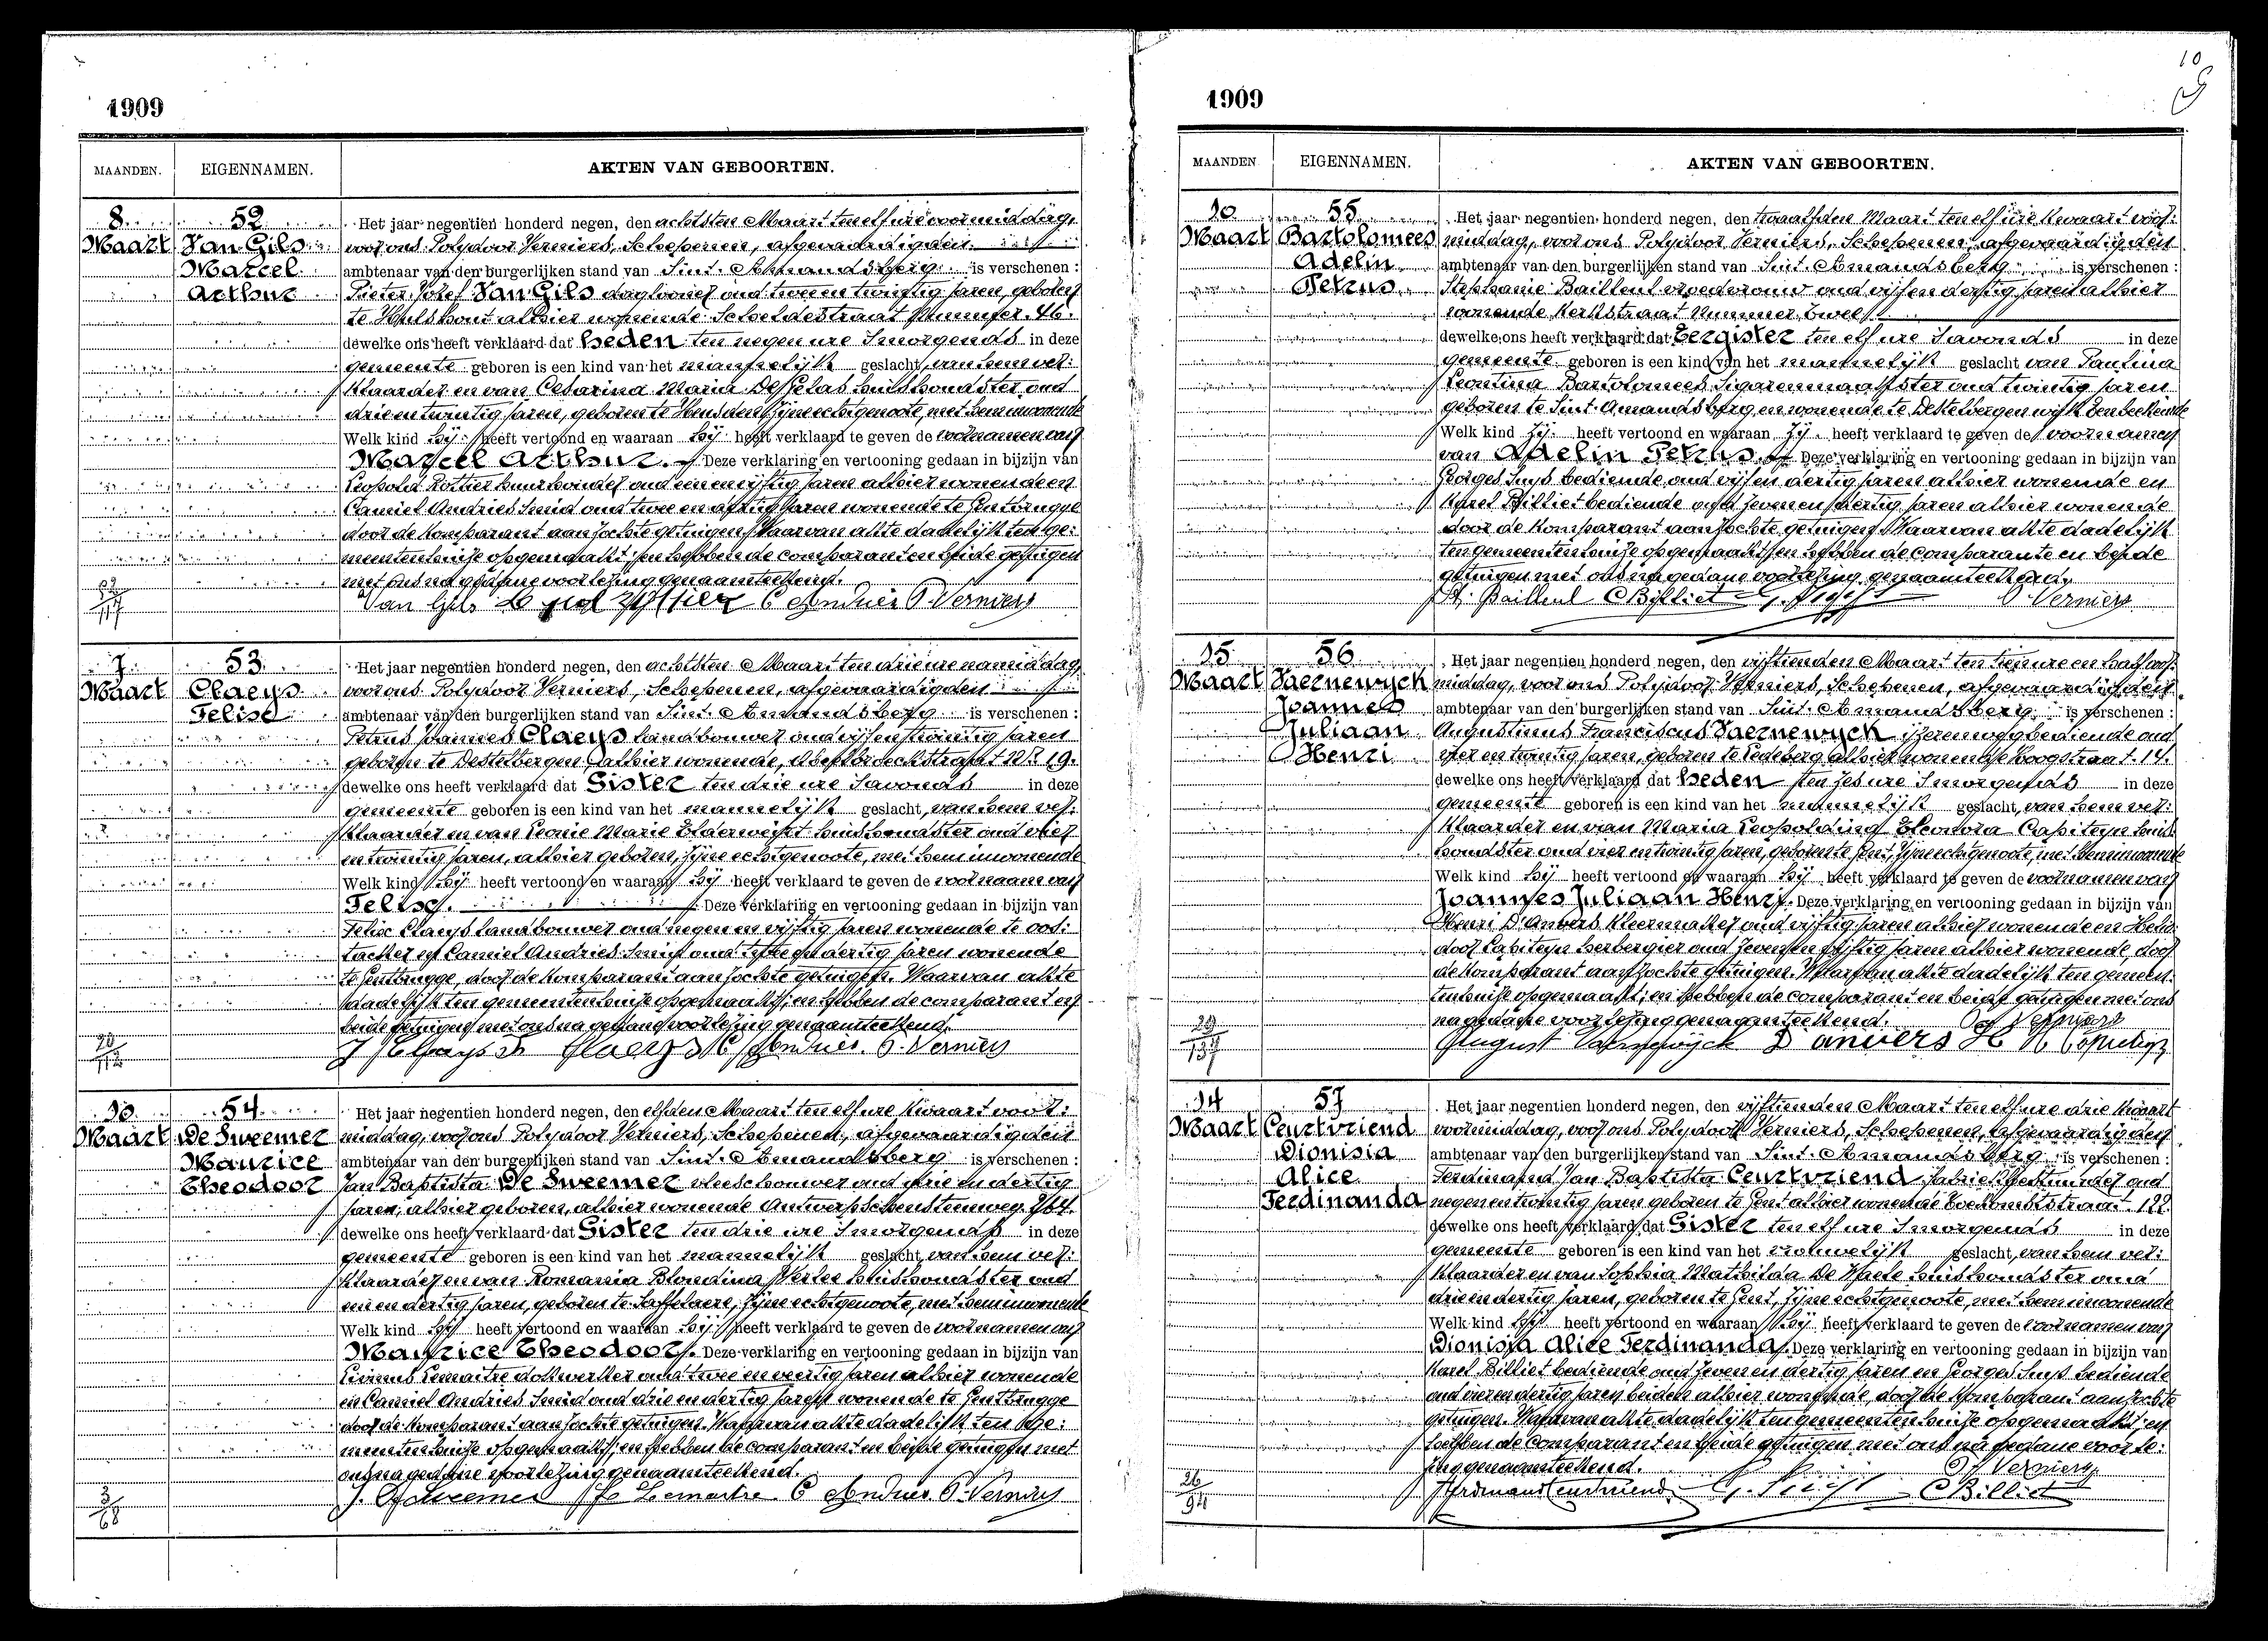 1909
MAANDEN. EIGENNAMEN. AKTEN VAN GEBOORTEN.
8 Maart
52
Van Gils
Marcel
Arthur
Het jaar negentien honderd negen, den achtsten Maart ten elf ure voormiddag,
voor ons Polydoor Verniers, Schepenen, afgevaardigden
ambtenaar van den burgerlijken stand van Sint-Amandsberg is verschenen :
Pieter Jozef Van Gils daglooner oud twee en twintig jaren, geboren
te Hulshout alhier wonende Scheldestraat Nummer 46.
dewelke ons heeft verklaard dat heden ten negen ure 's morgends in deze
gemeente geboren is een kind van het mannelijk geslacht, van hem ver:
klaarder en van Cesarina Maria huishoudster oud
drie en twintig jaren, geboren te Heusden zijne echtgenoote, met hem inwonende
Welk kind hij heeft vertoond en waaraan hij heeft verklaard te geven de voornamen van
Marcel Arthur. Deze verklaring en vertooning gedaan in bijzijn van
Leopold oud een en vijftig jaren alhier wonende en
Camiel Andries smid oud twee en dertig jaren wonende te Gentbrugge
door de komparant aanzochte getuigen. Waarvan akte dadelijk ten ge:
meentenhuize opgemaakt; en hebben de comparant en beide getuigen
met ons na gedane voorlezing genaamteekend.
Van Gils C Andries P. Verniers
7 Maart
53
Claeys
Felise
Het jaar negentien honderd negen, den achtsten Maart ten drie ure namiddag,
voor ons Polydoor Verniers, Schepenen, afgevaardigden
ambtenaar van den burgerlijken stand van Sint-Amandsberg is verschenen :
Petrus Joannes Claeys landbouwer oud vijf en twintig jaren
geboren te Destelbergen alhier wonende, Nr 19.
dewelke ons heeft verklaard dat Gister ten drie ure 's avonds in deze
gemeente geboren is een kind van het mannelijk geslacht, van hem ver:
klaarder en van Leonie Marie Elderweirt huishoudster oud vier
en twintig jaren, alhier geboren, zijne echtgenoote, met hem inwonende
Welk kind hij heeft vertoond en waaraan hij heeft verklaard te geven de voornaam van
Felise. Deze verklaring en vertooning gedaan in bijzijn van
Felix Claeys landbouwer oud negen en vijftig jaren wonende te Oos:
tacker en Camiel Andries smid oud twee en dertig jaren wonende
te Gentbrugge, door de komparant aanzochte getuigen. Waarvan akte
dadelijk ten gemeentenhuize opgemaakt; en hebben de comparant en
beide getuigen met ons na gedane voorlezing genaamteekend.
Claeys C Andries. P. Verniers
10 Maart
54
De Sweemer
Maurice
Theodoor
Het jaar negentien honderd negen, den elfden Maart ten elf ure kwaart voor:
middag, voor ons Polydoor Verniers, Schepenen, afgevaardigden
ambtenaar van den burgerlijken stand van Sint-Amandsberg is verschenen :
Jan Baptista De Sweemer vleeschouwer oud drie en dertig
jaren, alhier geboren, alhier wonende Antwerpschensteenweg 264.
dewelke ons heeft verklaard dat Gister ten drie ure 's morgends in deze
gemeente geboren is een kind van het mannelijk geslacht, van hem ver:
klaarder en van Romania Blondina Verlee huishoudster oud
een en dertig jaren, geboren te Saffelaere, zijne echtgenoote, met hem inwonende
Welk kind hij heeft vertoond en waaraan hij heeft verklaard te geven de voornamen van
Maurice Theodoor. Deze verklaring en vertooning gedaan in bijzijn van
Livinus Lemaitre dokwerker oud twee en veertig jaren alhier wonende
en Camiel Andries smid oud drie en dertig jaren wonende te Gentbrugge
door de komparant aanzochte getuigen. Waarvan akte dadelijk ten ge:
meentenhuize opgemaakt; en hebben de comparant en beide getuigen met
ons na gedane voorlezing genaamteekend.
J. Desweemer Lemaitre C Andries P. Verniers
3/68
10
1909
MAANDEN EIGENNAMEN. AKTEN VAN GEBOORTEN.
10 Maart
55
Bartolomees
Adelin
Petrus
Het jaar negentien honderd negen, den twaalfden Maart ten elf ure kwaart voor:
middag, voor ons Polydoor Verniers, Schepenen, afgevaardigden
ambtenaar van den burgerlijken stand van Sint-Amandsberg is verschenen :
Stephanie Bailleul vroedvrouw oud vijf en dertig jaren alhier
wonende Kerkstraat Nummer twee
dewelke ons heeft verklaard dat Eergister ten elf ure 's avonds in deze
gemeente geboren is een kind van het mannelijk geslacht van Paulina
Leontina Bartolomees Sigarenmaakster oud twintig jaren
geboren te Sint-Amandsberg en wonende te Destelbergen wijk Eenbeekeinde
Welk kind zij heeft vertoond en waaraan zij heeft verklaard te geven de voornamen
van Adelin Petrus. Deze verklaring en vertooning gedaan in bijzijn van
Georges Suys bediende oud vijf en dertig jaren alhier wonende en
Karel Billiet bediende oud zeven en dertig jaren alhier wonende
door de komparant aanzochte getuigen. Waarvan akte dadelijk
ten gemeentenhuize opgemaakt; en hebben de comparante en beide
getuigen met ons na gedane voorlezing genaamteekend.
St. Bailleul C Billiet G. Suys P. Verniers
15 Maart
56
Vaernewyck
Joannes
Juliaan
Henri
Het jaar negentien honderd negen, den vijftienden Maart ten tien ure en half voor:
middag, voor ons Polydoor Verniers, Schepenen, afgevaardigden
ambtenaar van den burgerlijken stand van Sint-Amandsberg is verschenen :
Augustinus Franciscus Vaernewyck ijzerenwegbediende oud
vier en twintig jaren, geboren te Ledeberg alhier wonende Hoogstraat 14.
dewelke ons heeft verklaard dat heden ten zes ure 's morgends in deze
gemeente geboren is een kind van het mannelijk geslacht, van hem ver:
klaarder en van Maria Leopoldina Eleonora Capiteyn huis
houdster oud vier en twintig jaren, geboren te Gent, zijne echtgenoote, met hem inwonende
Welk kind hij heeft vertoond en waaraan hij heeft verklaard te geven de voornamen van
Joannes Juliaan Henri. Deze verklaring en vertooning gedaan in bijzijn van
Henri D'Anvers kleermaker oud vijftig jaren alhier wonende en
Capiteyn herbergier oud zeven en vijftig jaren alhier wonende, door
de komparant aanzochte getuigen. Waarvan akte dadelijk ten gemeen:
tenhuize opgemaakt; en hebben de comparant en beide getuigen met ons
na gedane voorlezing genaamteekend. P. Verniers
August Vaernewyck D'anvers H Capiteyn
14 Maart
57
Ceurtvriend
Dionisia
Alice
Ferdinanda
Het jaar negentien honderd negen, den vijftienden Maart ten elf ure drie kwaart
voormiddag, voor ons Polydoor Verniers, Schepenen, afgevaardigden
ambtenaar van den burgerlijken stand van Sint-Amandsberg is verschenen :
Ferdinand Jan Baptista Ceurtvriend fabriekbestuurder oud
negen en twintig jaren geboren te Gent alhier wonende 122.
dewelke ons heeft verklaard dat Gister ten elf ure 's morgends in deze
gemeente geboren is een kind van het vrouwelijk geslacht, van hem ver:
klaarder en van Sophia Mathilda De Waele huishoudster oud
drie en dertig jaren, geboren te Gent, zijne echtgenoote, met hem inwonende
Welk kind hij heeft vertoond en waaraan hij heeft verklaard te geven de voornamen van
Dionisia Alice Ferdinanda. Deze verklaring en vertooning gedaan in bijzijn van
Karel Billiet bediende oud zeven en dertig jaren en Georges Suys bediende
oud vier en dertig jaren beiden alhier wonende, door de komparant aanzochte
getuigen. Waarvan akte dadelijk ten gemeentenhuize opgemaakt; en
hebben de comparant en beide getuigen met ons na gedane voorle:
zing genaamteekend. P. Verniers
Ferdinand Ceurtvriend G. Suys C Billiet
26/94